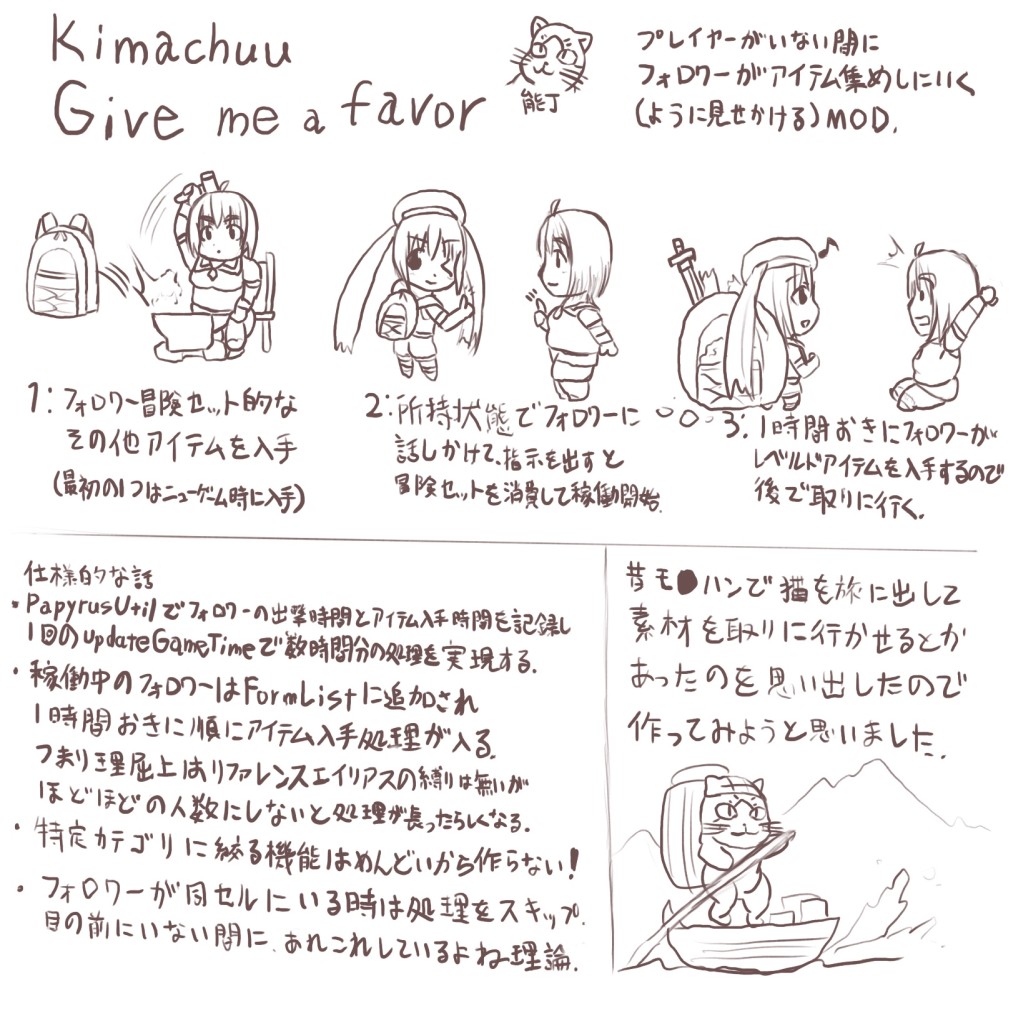 Kimachuu
Give me a favor
能丁
プレイヤーがいない間に
フォロワーがアイテム集めしにいく
(ように見せかける)MOD.
1:フォロワー冒険セット的な
その他アイテムを入手
(最初の1つはニューゲーム時に入手)
2:所持状態でフォロワーに
話しかけて、指示を出すと
冒険セットを消費して稼働開始.
3.1時間おきにフォロワーが
レベルドアイテムを入手するので
後で取りに行く.
仕様的な話
・PapyrusUtilでフォロワーの出発時間とアイテム入手時間を記録し
1回のupdateGameTimeで数時間分の処理を実現する.
・稼働中のフォロワーはFormListに追加され
1時間おきに順にアイテム入手処理が入る.
つまり理屈上はリファレンスエイリアスの縛りは無いが
ほどほどの人数にしないと処理が長ったらしくなる.
・特定カテゴリに絞る機能はめんどいから作らない!
・フォロワーが同セルにいる時は処理をスキップ.
目の前にいない間に、あれこれしているよね理論.
昔モ●ハンで猫を旅に出して
素材を取りに行かせるとか
あったのを思い出したので
作ってみようと思いました.